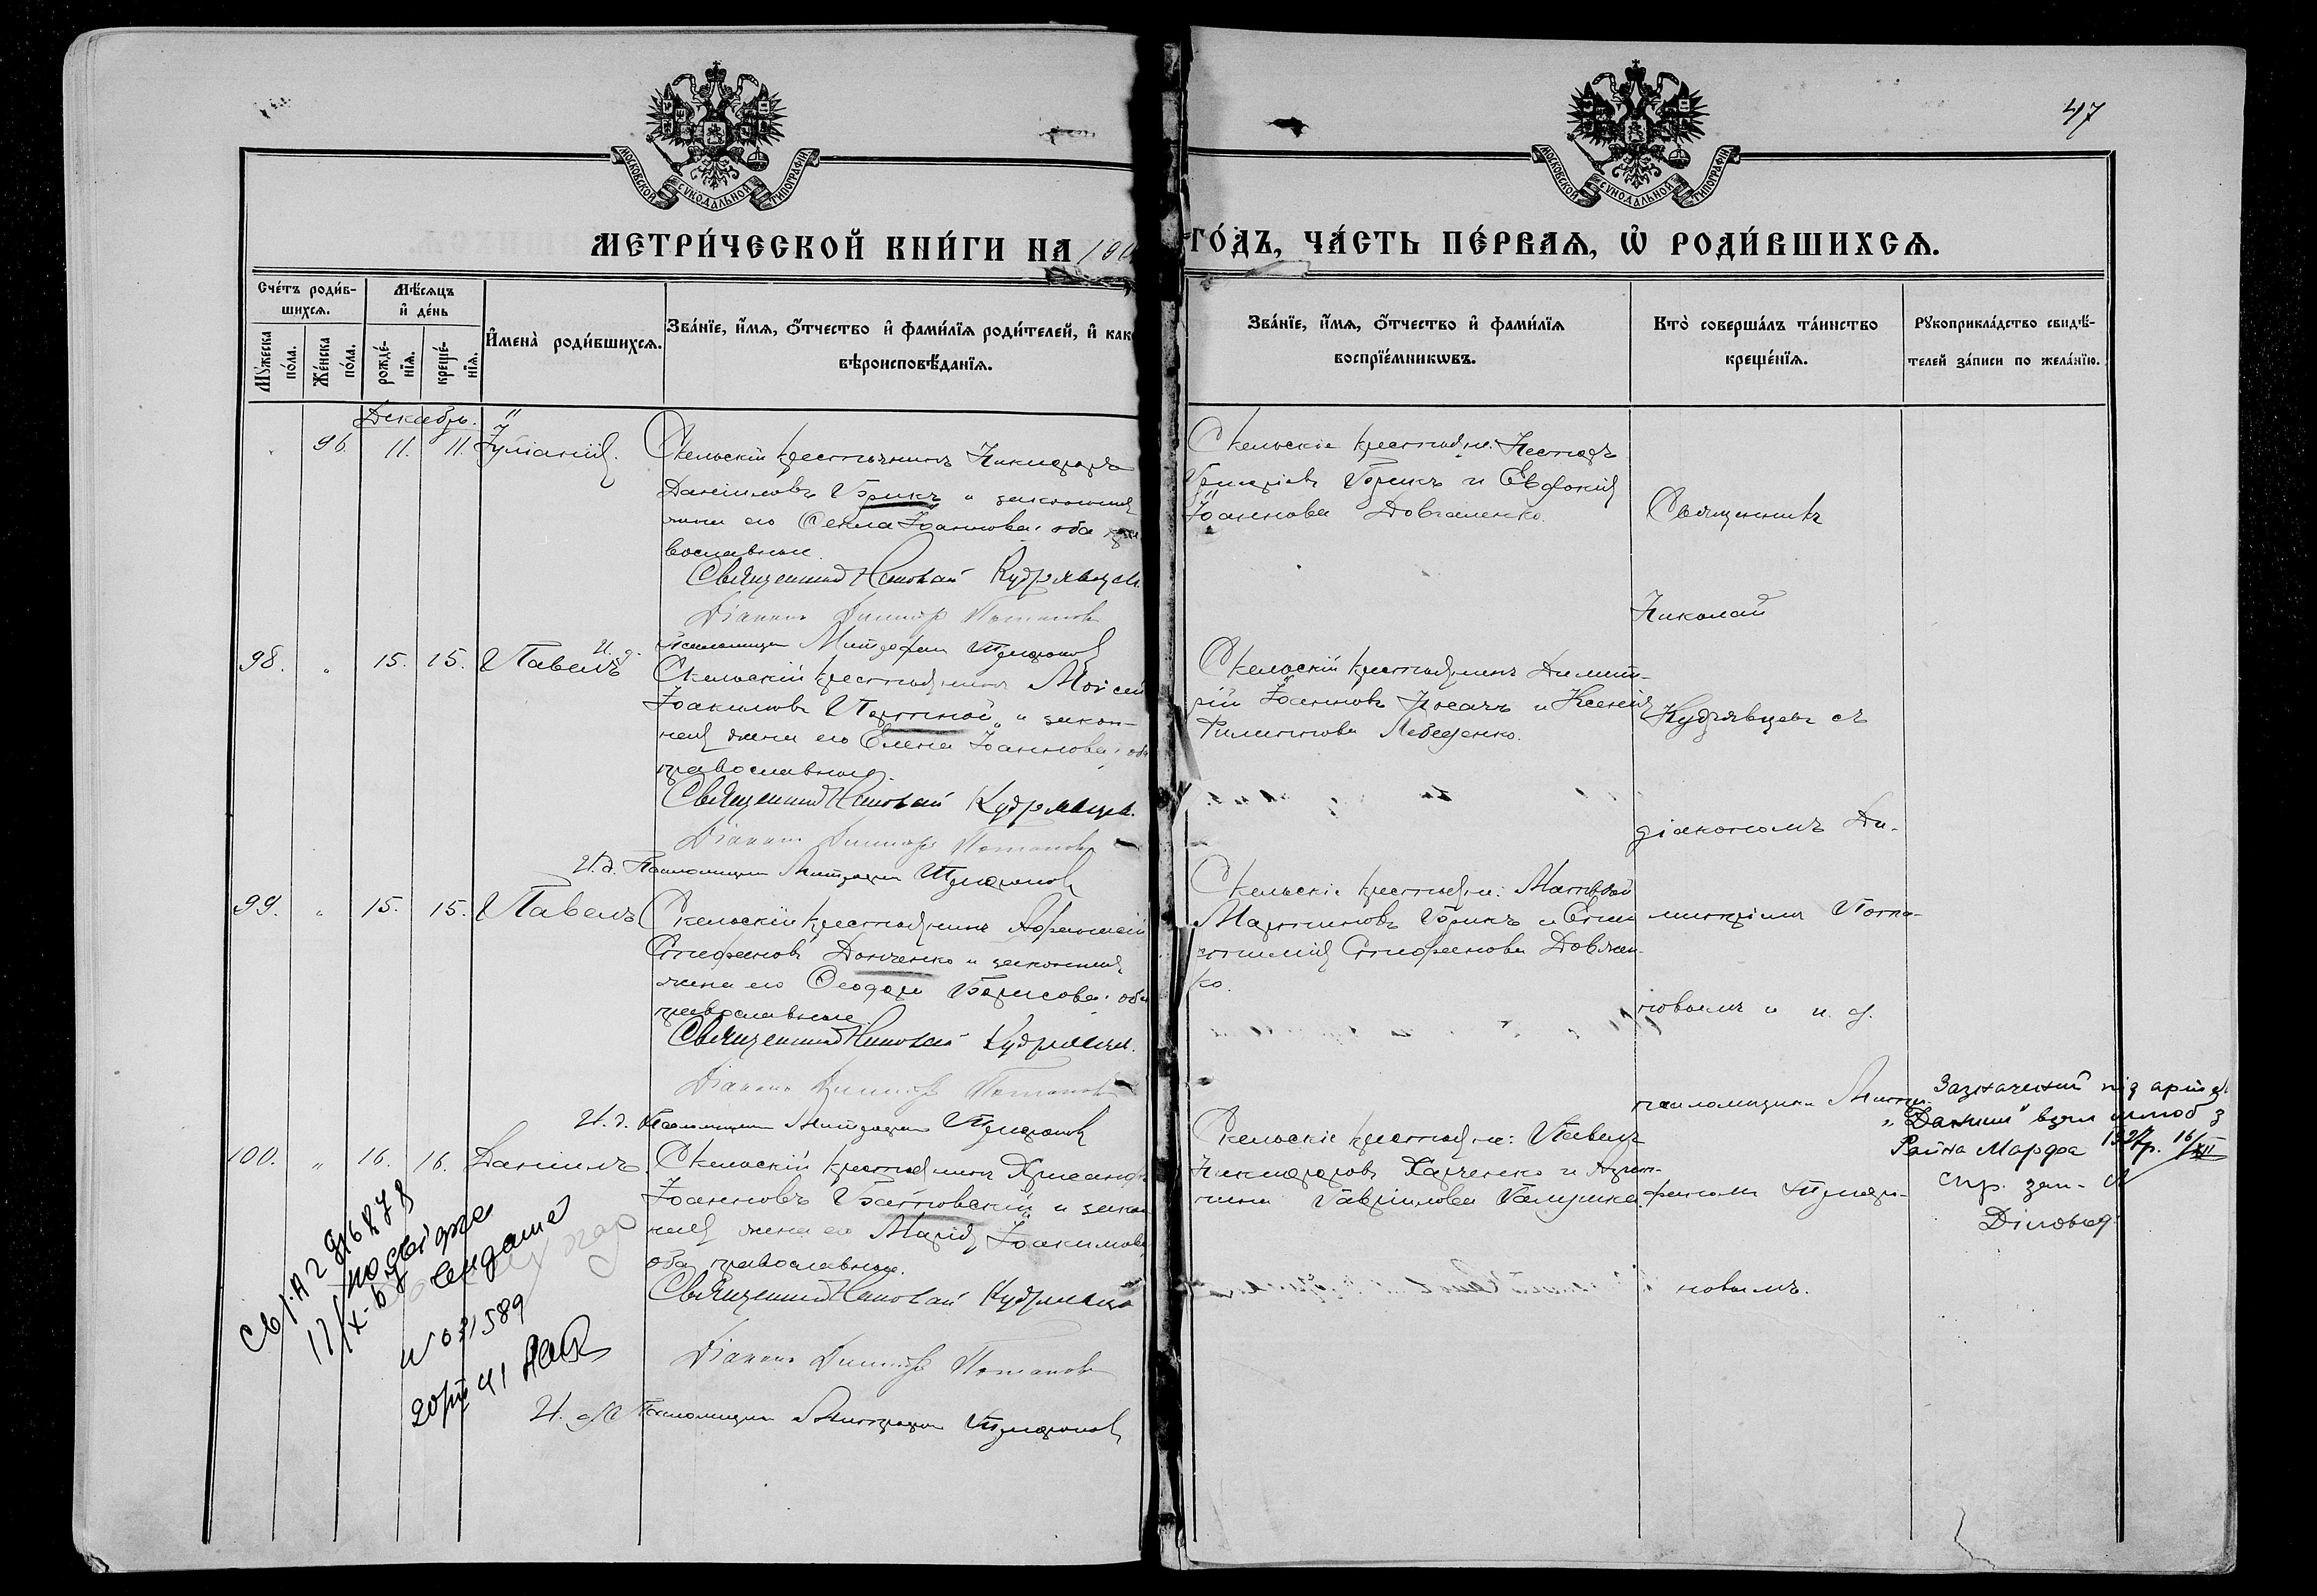 47
МОСКОВСКОЙ СѴНОДАЛЬНОЙ ТИПОГРАФІИ
МОСКОВСКОЙ СѴНОДАЛЬНОЙ ТИПОГРАФІИ
МЕТРИ́ЧЕСКОЙ КНИ́ГИ НА 190
ГО́ДЪ, ЧА́СТЬ ПЕ́РВАѦ, Ѡ҆ РОДИ́ВШИХСѦ.
Сче́тъ роди́в-
шихсѧ.
Мѣ́сѧцъ
и҆ де́нь
Мꙋ́жеска
по́ла.
Же́нска
по́ла.
рожде́-
нїѧ.
креще́-
нїѧ.
И҆мена̀ роди́вшихсѧ.
Зва́нїе, и҆́мѧ, ѻ҆́тчество и҆ фами́лїѧ роди́телей, и҆ как
вѣроисповѣ́данїѧ.
Зва́нїе, и҆́мѧ, ѻ҆́тчество и҆ фами́лїѧ
воспрїе́мникѡвъ.
Кто̀ соверша́лъ та́инство
креще́нїѧ.
Рꙋкоприкла́дство свидѣ́-
телей за́писи по жела́нїю.
Декабрь.
96. 11. 11. Іуліанія.
Скельскій крестьянинъ Никифоръ
Даніиловъ Брикъ и законная
жена его Ѳекла Іоаннова, оба пра
вославные.
Священникъ Николай Кудрявцевъ
Діаконъ Димитр Потапов
И. д. Псаломщика Митрофан
Скельскіе крестьяне: Несторъ
Григоріевъ Брикъ и Евдокія
Іоаннова Довгаленко.
Священникъ
Николай
Кудрявцевъ съ
діакономъ Ди-
митріемъ Пота-
повымъ и и. д.
псаломщика Митро-
фаномъ
новымъ.
98. " 15. 15. Павелъ
Скельскій крестьянинъ Моисей
Іоакимовъ Портной и закон-
ная жена его Елена Іоаннова, оба
православные.
Священникъ Николай Кудрявцев
Діаконъ Димитр Потапов
И. д. Псаломщика Митрофан
Скельскій крестьянинъ Димит-
рій Іоанновъ Косачъ и Ксенія
Филиппова Лебеденко.
99. " 15. 15. Павелъ
Скельскій крестьянинъ Афанасій
Стефановъ Донченко и законная
жена его Ѳеодора Борисова, оба
православные.
Священникъ Николай Кудрявцев
Діаконъ Димитр Потапов
И. д. Псаломщика Митрофан
Скельскіе крестьяне: Матвѣй
Мартиновъ Брикъ и
Стефанова Довжен-
ко.
100. " 16. 16. Даніилъ.
Скельскій крестьянинъ Хрисанфъ
Іоанновъ и закон
ная жена его Марія Іоакимова
оба православные.
Священникъ Николай Кудрявцев
Діаконъ Димитр Потапов
И. д. Псаломщика Митрофан
Скельскіе крестьяне: Павелъ
Никифоровъ Харченко и
Гавріилова Галушка.
Зазначений під
"Данило" взяв шлюб з
Марфа 1927р. 16/XII
Діловод
N 031589